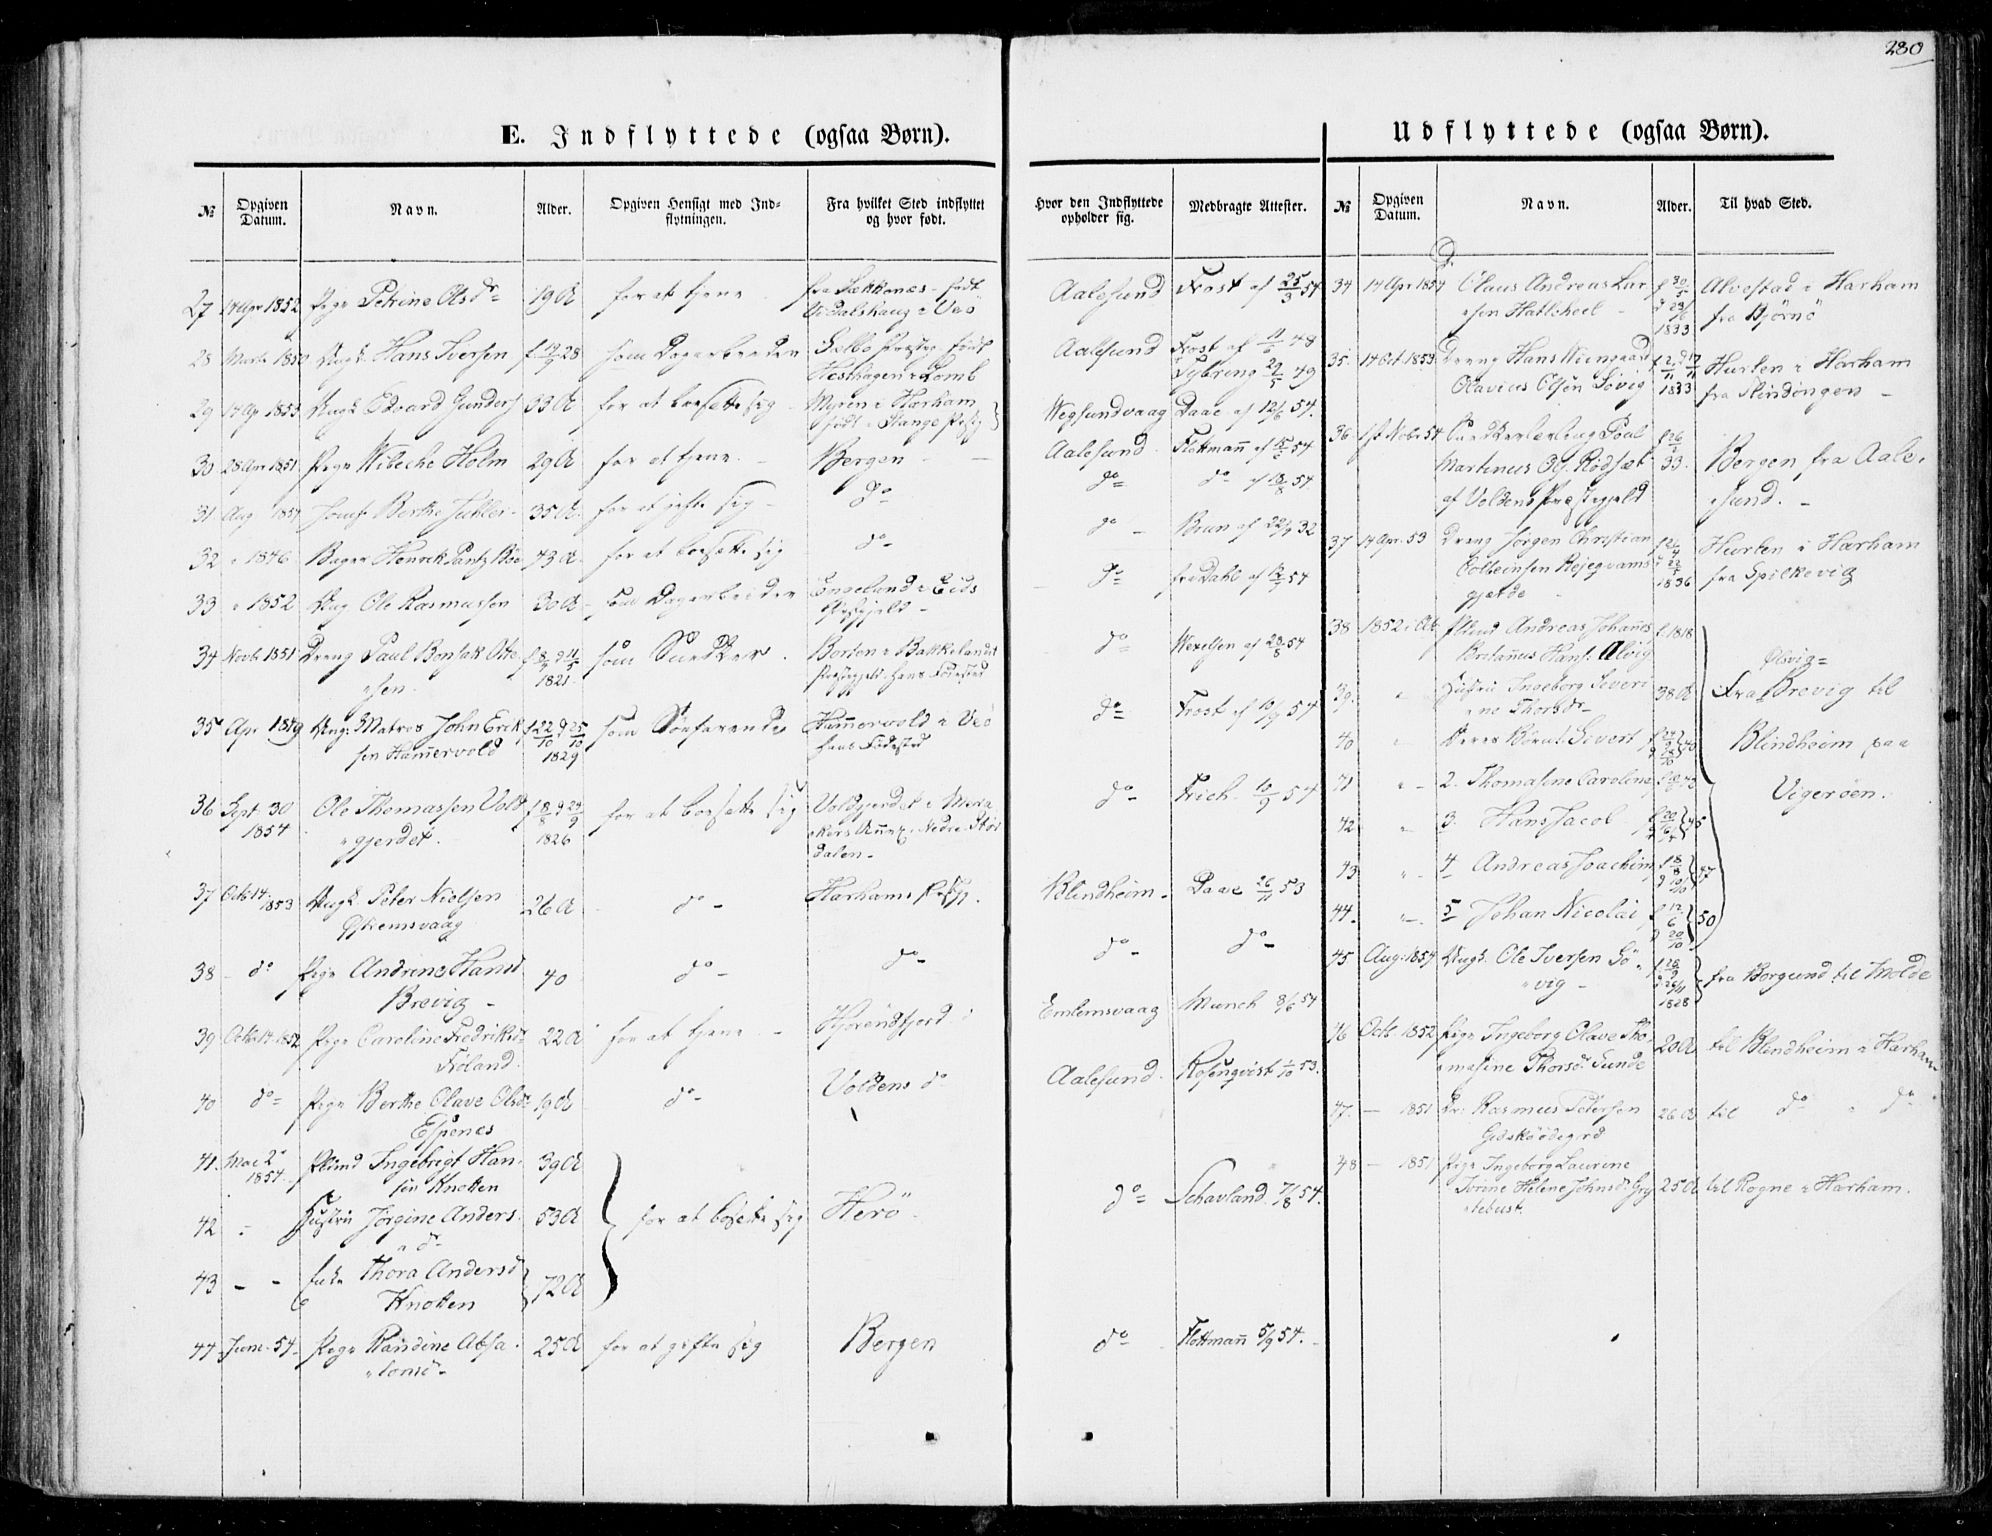 280
E. Indflyttede (ogsaa Børn).
№ Opgiven Datum. Navn. Alder. Opgiven Hensigt med Indflytningen. Fra hvilket Sted indflyttet og hvor født. Hvor den Indflyttede opholder sig. Medbragte Attester.
27 14 Apr 1852 Pige Petrine Olsdr 19 A for at tjene fra Sekkenæs født Vidalshaug i Veö Aalesund Frost af 25/3 54
28 Marts 1850 Ungk. Hans Iversen f 19/9 28 som Dagarbeider Selbo Præstegj. født Hesthagen i Lomb Aalesund Frost af 11/6 48
Dybring 29/5 49
29 14 Ap 1853 Ungk Edvard Gunders 33 A for at bosette sig Myren i Harham født i Stange Wegsundvaag Daae af 12/6 54.
30 28 Apr 1851 Pige Wibeche Holm 29 A for at tjene Bergen Aalesund Flottmann af 54
31 Aug 1854 Jomf. Berthe 35 A. for at gifte sig do do do af 54
32 " 1846 Bager Henrik Pantz 43 A. for at bosette sig do do Brun af 22/9 32
33 " 1852 Ung Ole Rasmussen 30 A som Dagarbeider i Eids Præstegjeld do fra Dahl af 54
34 Novbr 1851 Dreng Paul Bonsak Otte
sen f 8/7 d 11/5 1821 som Snedker Borten i Bakkelandet Præstegjeld. hans Fødested do Wexelsen af 28/8 54
35 Apr 1849 Ung: Matros John Erik
sen Hamervold f 22/10 d 25/10 1829 som Söefarende Hamervold i Veö hans Födested do Frost af 10/9 54
36 Sept 30 1854 Ole Thomassen Vold
gjerdet. f 8/8 d 24/9 1826 for at bosette sig Voldgjerdet i Mera
kers Annex. Nedre Stör
dalen do Frich 10/9 54
37 Octb 14 1853 Ungk Peter Nielsen
Östremsvaag 26 A do Harhams Blindheim Daae 26/11 53
38 do Pige Andrine Hansd
Brevig 40 do do do do
39 Octbr 14 1852 Pige Caroline Fredriksd
Foland. 22 A for at tjene Hjørendfjord Emlemsvaag Munch 8/6 54
40 do Pige Berthe Olave Olsdr
Espenes 19 A do Voldens do Aalesund Rosenqvist 1/10 53.
41. Mai 2 1854 Ingebrigt Han
sen Knotten 39 A for at bosette sig Herö do Schavland 7/8 54.
42 - Hustru Jørgine Anders
dr 53 A
43 - - Enke Thora Andersd
Knotten 72 A
44 June 54 Pige Randine Absa
lonsd 25 A for at gifte sig Bergen do Flottmann 5/9 54.
Udflyttede (ogsaa Børn).
№ Opgiven Datum. Navn. Alder. Til hvad Sted.
34 14 Apr 1854 Claus Andreas Lar
sen Hatleheel f 30/5 1833 Alvestad i Harham
fra Bjørnö
35. 14 Oct. 1853 Dreng Hans
Olavius Olsen Sövig 1833 Hurlen i Harham
fra Slindingen
36 1st Nobr 54 Snedkerlærling Poul
Martinus Ols. Rödsæt
af Voldens Præstegjeld 33. Bergen fra Aale
sund.
37 14 Apr. 53 Dreng Jørgen Christian
gjerde 1836 Hurlen i Harham
fra Spilkevig
38 1852 i Oct Andreas Johannes
Britanus Hans. Alvig f. 1818 Ølsvig
39. " Hustru Ingeborg Severi
ne Thorsdr 38 A Fra Brevig til
40 " Deres Börn 1. Sivert Blindheim paa
41 " 2. Thomasine Caroline Vigeröen.
42 " 3. Hans Jacob 45
43 " 4 Andreas Joachim 47
44. " 5 Johan Nicolai f 12/6 d 20/10 50
45 Aug. 1854 Ungk. Ole Iversen Sö
vig 1828 fra Borgund til Molde
46 Octb 1852 Pige Ingeborg Olave Tho
masine Thorsd. Sunde 20 A til Blindheim i Harham
47. - 1851 Dr: Rasmus Petersen
Gidsköödegrd 26 A til do i do
48 - 1851 Pige Ingeborg Laurine
Helene Johnsd. Gry
tebust. 25 A til Rogne i Harham.